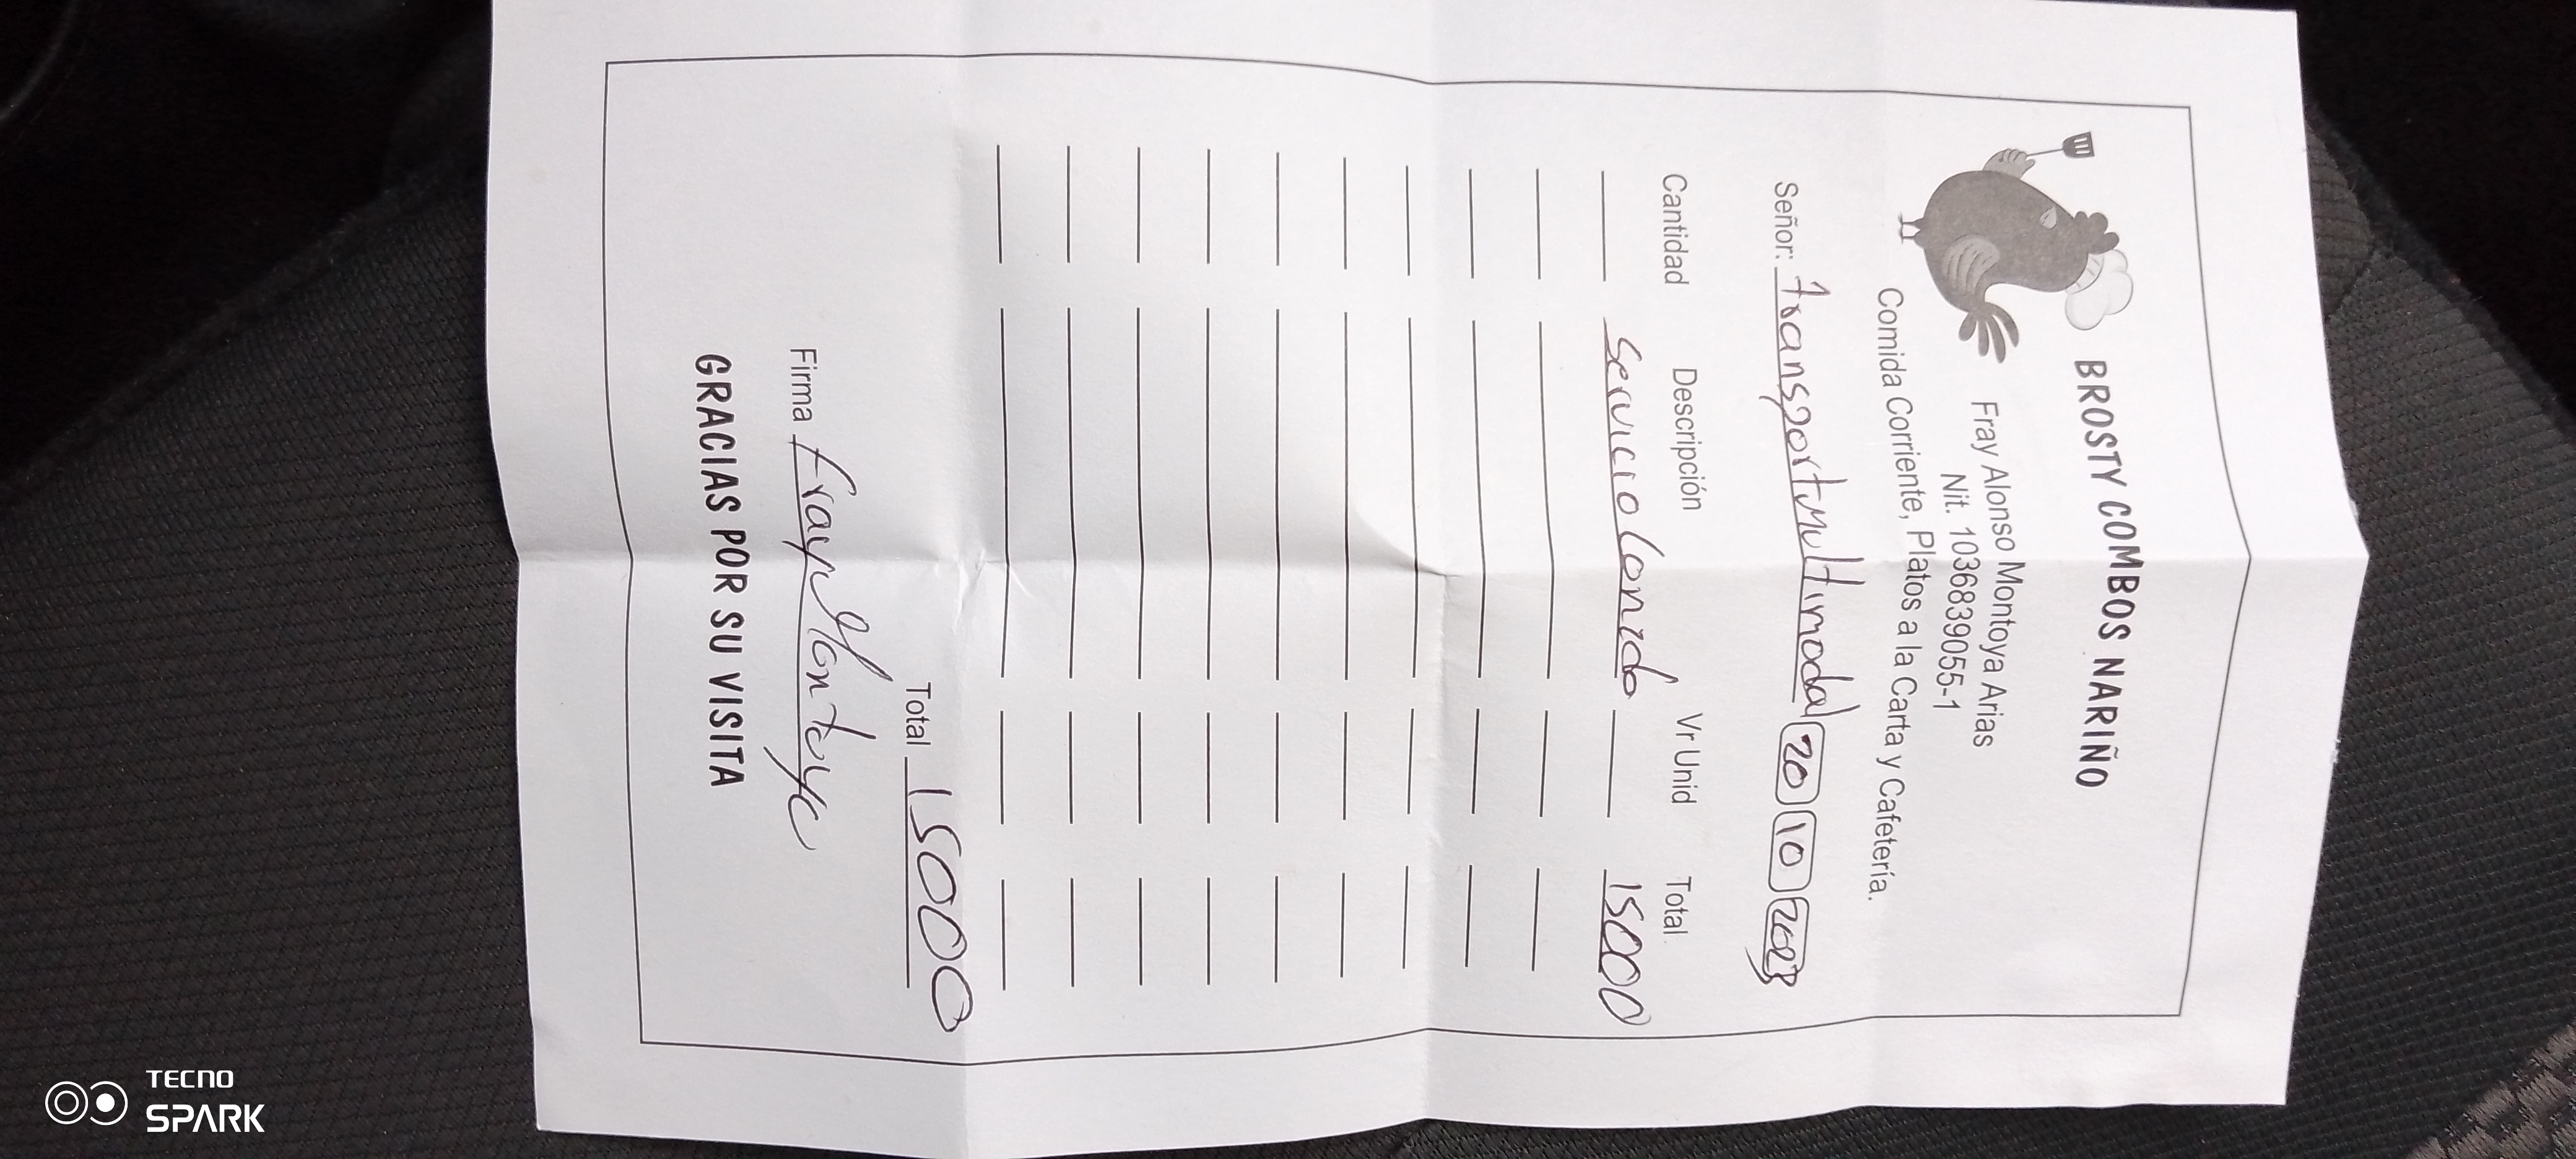 BROSTY COMBOS NARIÑO
Fray Alonso Montoya Arias
Nit. 1036839055-1
Comida Corriente, Platos a la Carta y Cafetería.
Señor: transportmultimodal 20 10 2023
Cantidad Descripción Vr Unid Total
Servicio Comida 15000
Total 15000
Firma Fray Montoya
GRACIAS POR SU VISITA
TECNO
SPARK